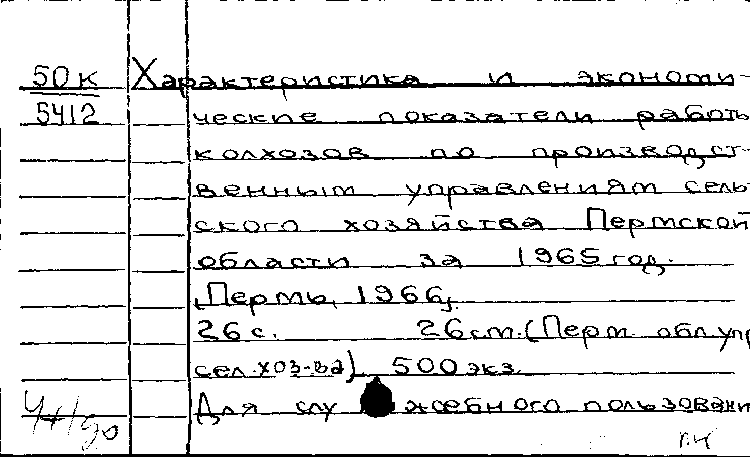 50к Характеристика и экономи-
5412 ческие показатели работы
колхозов по производст-
венным управлениям сель-
ского хозяйства Пермской
области за 1965 год.
Пермь, 1966г.
26 с. 26 см. (Перм. обл упр
сел. хоз-ва) 500 экз.
Для служебного пользовани